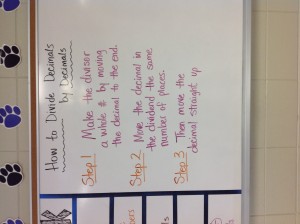 How to Divide Decimals
by Decimals
Step 1 Make the divisor
a whole # by moving
the decimal to the end.
Step 2 Move the decimal in
the dividend the same
number of places.
Step 3 Then move the
decimal straight up